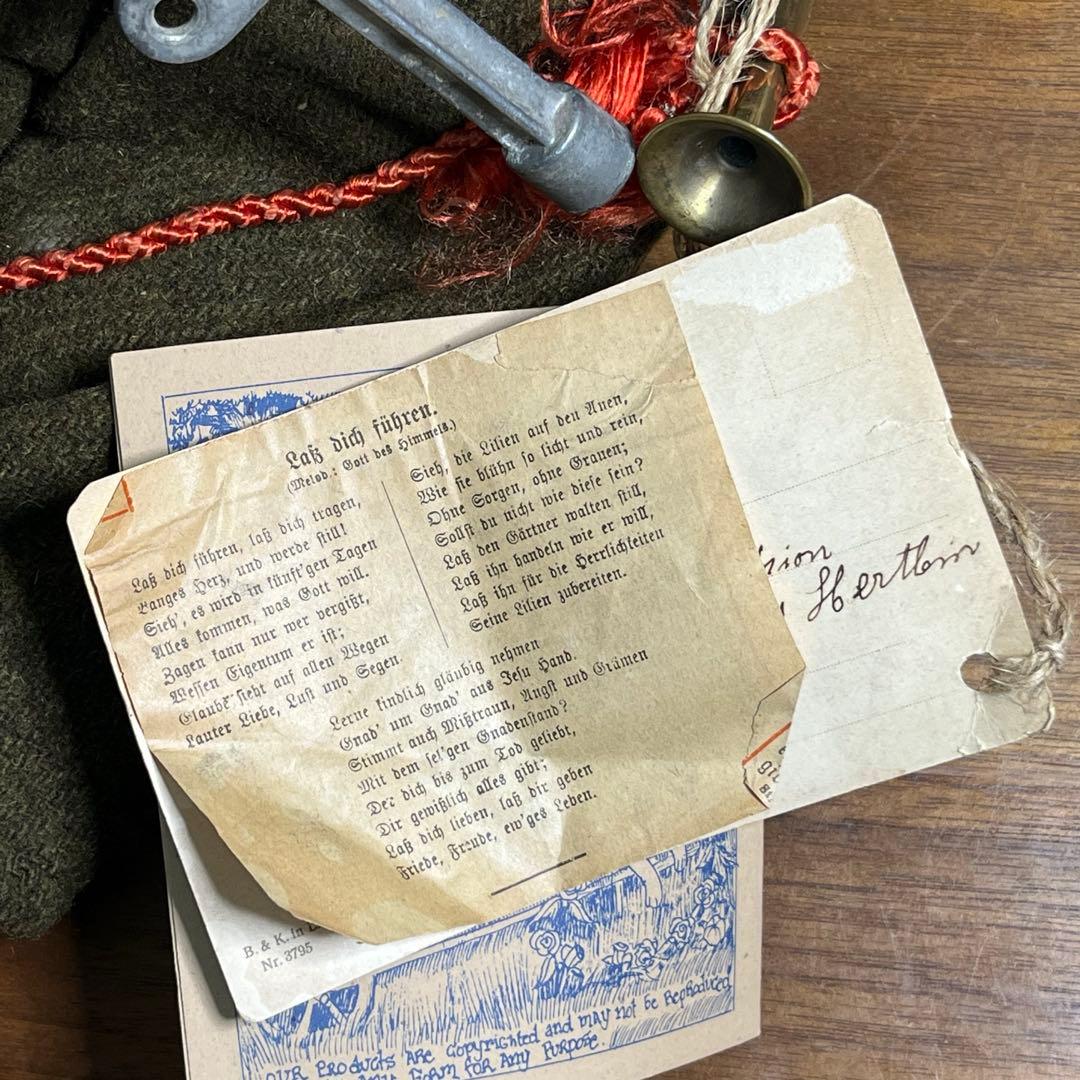 Laß dich führen.
(Melod.: Gott des Himmels.)
Laß dich führen, laß dich tragen,
Banges Herz, und werde still!
Sieh', es wird in künft'gen Tagen
Alles kommen, was Gott will.
Zagen kann nur wer vergißt,
Wessen Eigentum er ist;
Glaube sieht auf allen Wegen
Lauter Liebe, Lust und Segen.
Sieh, die Lilien auf den Auen,
Wie sie blühn so licht und rein,
Ohne Sorgen, ohne Grauen;
Sollst du nicht wie diese sein?
Laß den Gärtner walten still,
Laß ihn handeln wie er will,
Laß ihn für die Herrlichkeiten
Seine Lilien zubereiten.
Lerne kindlich gläubig nehmen
Gnad' um Gnad' aus Jesu Hand.
Stimmt auch Mißtraun, Angst und Grämen
Mit dem sel'gen Gnadenstand?
Der dich bis zum Tod geliebt,
Dir gewißlich alles gibt;
Laß dich lieben, laß dir geben
Friede, Freude, ew'ges Leben.
Hertlein
B. & K. in
Nr. 3795
OUR PRODUCTS ARE copyrighted and may not be Reproduced
FORM FOR ANY PURPOSE.